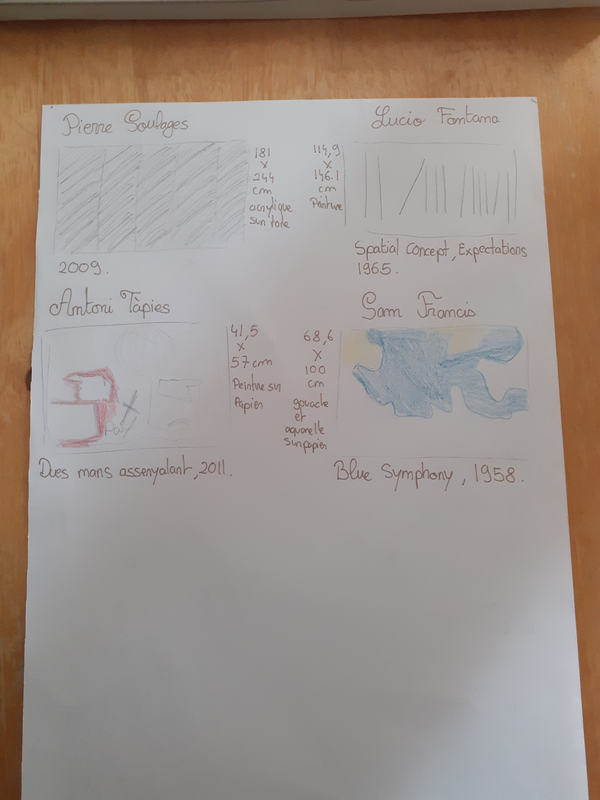 Pierre Soulages
181
x
244
cm
acrylique
sur toile
2009.
Lucio Fontana
114,9
x
146.1
cm
Peinture
Spatial Concept, Expectations
1965.
Antoni Tàpies
41,5
x
57 cm
Peinture sur
Papier
Dues mans assenyalant, 2011.
Sam Francis
68,6
x
100
cm
gouache
et
aquarelle
sur papier
Blue Symphony, 1958.